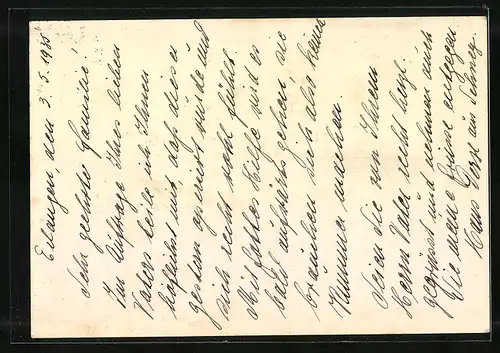 Erlangen, den 3. 5. 1935
Sehr geehrte Familie!
Im Auftrage Ihres lieben
Vaters teile ich Ihnen
höflichst mit, daß dieser
gestern operiert wurde und
sich recht wohl fühlt.
Mit Gottes Hilfe wird es
bald aufwärts gehen, sie
bräuchen sich also keinen
Kummer machen.
Seien Sie von Ihrem
Herrn Vater recht herzl.
gegrüsst und nehmen auch
Sie meine Grüsse entgegen
Hans